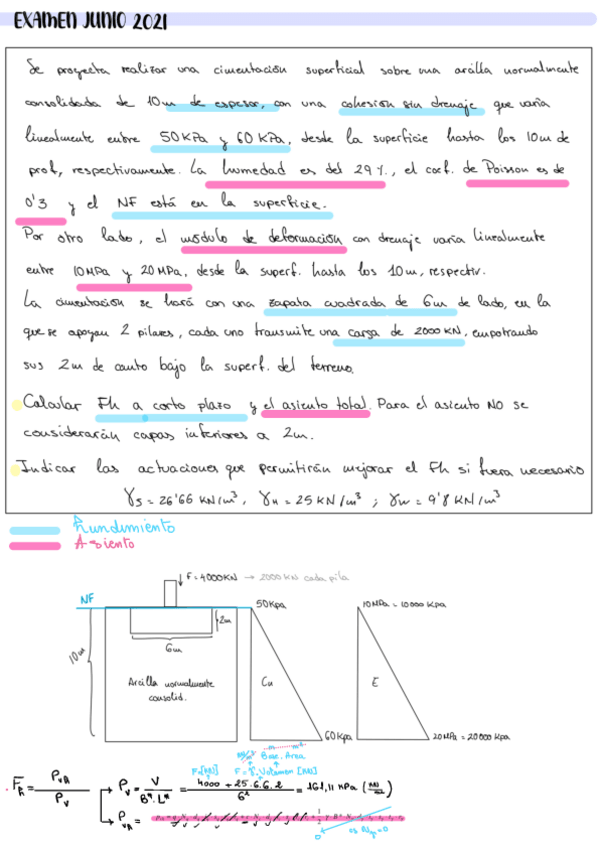 EXAMEN JUNIO 2021
Se proyecta realizar una cimentación superficial sobre una arcilla normalmente
consolidada de 10m de espesor, con una cohesión sin drenaje que varía
linealmente entre 50KPa y 60KPa, desde la superficie hasta los 10m de
prof, respectivamente. La humedad es del 29%, el coef. de Poisson es de
0'3 y el NF está en la superficie.
Por otro lado, el módulo de deformación con drenaje varía linealmente
entre 10MPa y 20MPa, desde la superf. hasta los 10m, respectiv.
La cimentación se hará con una zapata cuadrada de 6m de lado, en la
que se apoyan 2 pilares, cada uno transmite una carga de 2000KN, empotrando
sus 2m de canto bajo la superf. del terreno.
Calcular Fh a corto plazo y el asiento total. Para el asiento NO se
considerarán capas inferiores a 2m.
Indicar las actuaciones que permitirán mejorar el Fh si fuera necesario
γs = 26'66 KN/m³, γH = 25 KN/m³ ; γw = 9'8 KN/m³
Hundimiento
Asiento
F = 4000KN → 2000KN cada pila
NF
50Kpa
10MPa = 10000 Kpa
2m
6m
10m
Arcilla normalmente
consolid.
Cu
E
60Kpa
20MPa = 20000Kpa
Base. Area
F[KN]
F = γ. Volumen [KN]
Fh = PvR / Pv
Pv = V / B*. L* = 4000 + 25.6.6.2 / 6² = 161,11 KPa (KN/m²)
PvR =
es Nγ=0